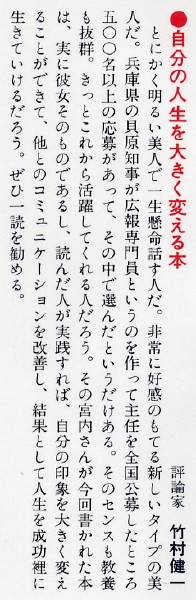 ●自分の人生を大きく変える本
評論家 竹村健一
とにかく明るい美人で一生懸命話す人だ。非常に好感のもてる新しいタイプの美
人だ。兵庫県の貝原知事が広報専門員というのを作って主任を全国公募したところ
五〇〇名以上の応募があって、その中で選んだというだけある。そのセンスも教養
も抜群。きっとこれから活躍してくれる人だろう。その宮内さんが今回書かれた本
は、実に彼女そのものであるし、読んだ人が実践すれば、自分の印象を大きく変え
ることができて、他とのコミュニケーションを改善し、結果として人生を成功裡に
生きていけるだろう。ぜひ一読を勧める。